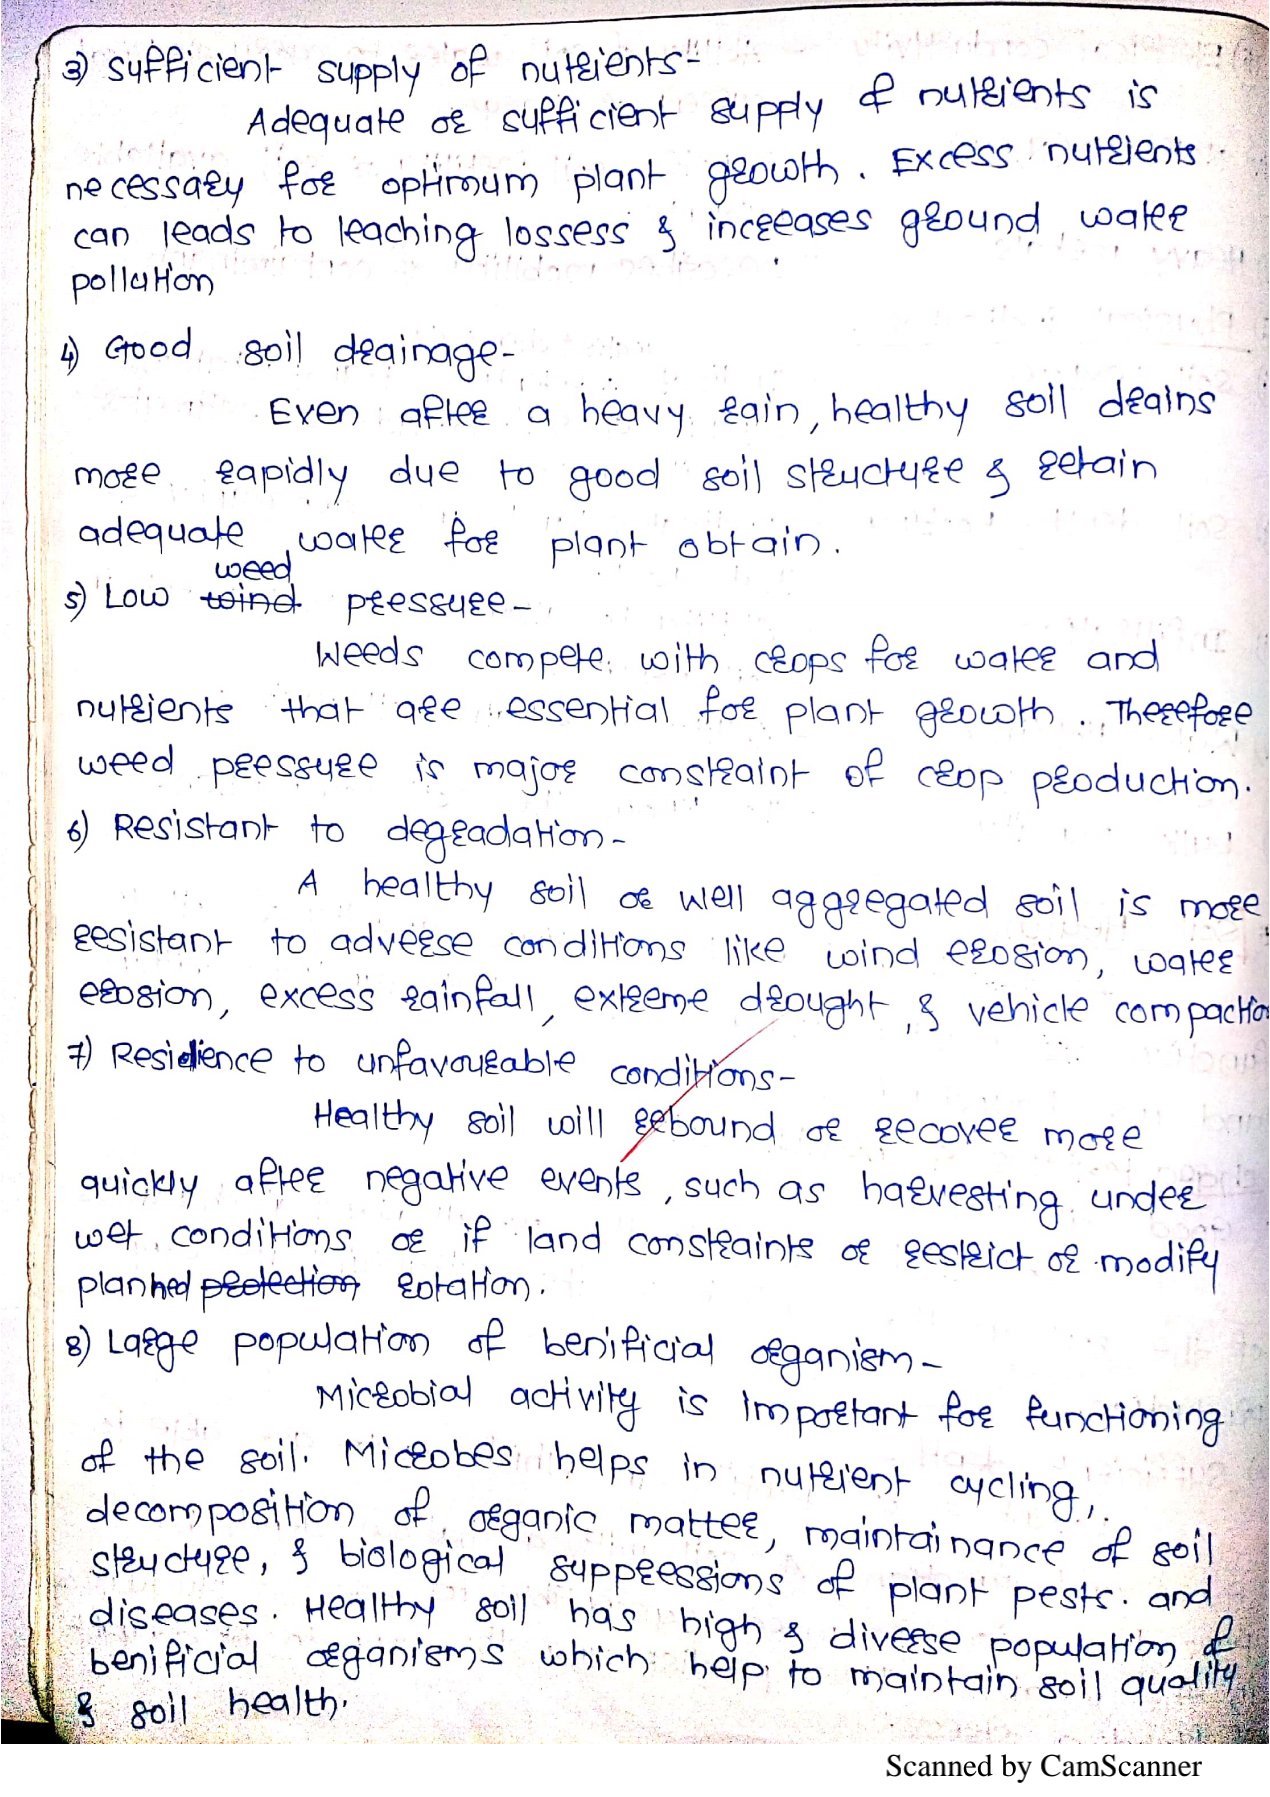 3) Sufficient supply of nutrients-
Adequate or sufficient supply of nutrients is
necessary for optimum plant growth. Excess nutrients
can leads to leaching lossess & increases ground water
pollution
4) Good soil drainage-
Even after a heavy rain, healthy soil drains
more rapidly due to good soil structure & retain
adequate water for plant obtain.
weed
5) Low wind pressure-
Weeds compete with crops for water and
nutrients that are essential for plant growth. Therefore
weed pressure is major constraint of crop production.
6) Resistant to degradation-
A healthy soil or well aggregated soil is more
resistant to adverse conditions like wind erosion, water
erosion, excess rainfall, extreme drought, & vehicle compactio
7) Residience to unfavourable conditions-
Healthy soil will rebound or recover more
quickly after negative events, such as harvesting under
wet conditions or if land constraints or restrict or modify
planned protection rotation.
8) Large population of benificial organism-
Microbial activity is important for functioning
of the soil. Microbes helps in nutrient cycling,
decomposition of organic matter, maintainance of soil
structure, & biological suppressions of plant pests. and
diseases. Healthy soil has high & diverse population of
benificial organisms which help to maintain soil quality
& soil health.
Scanned by CamScanner